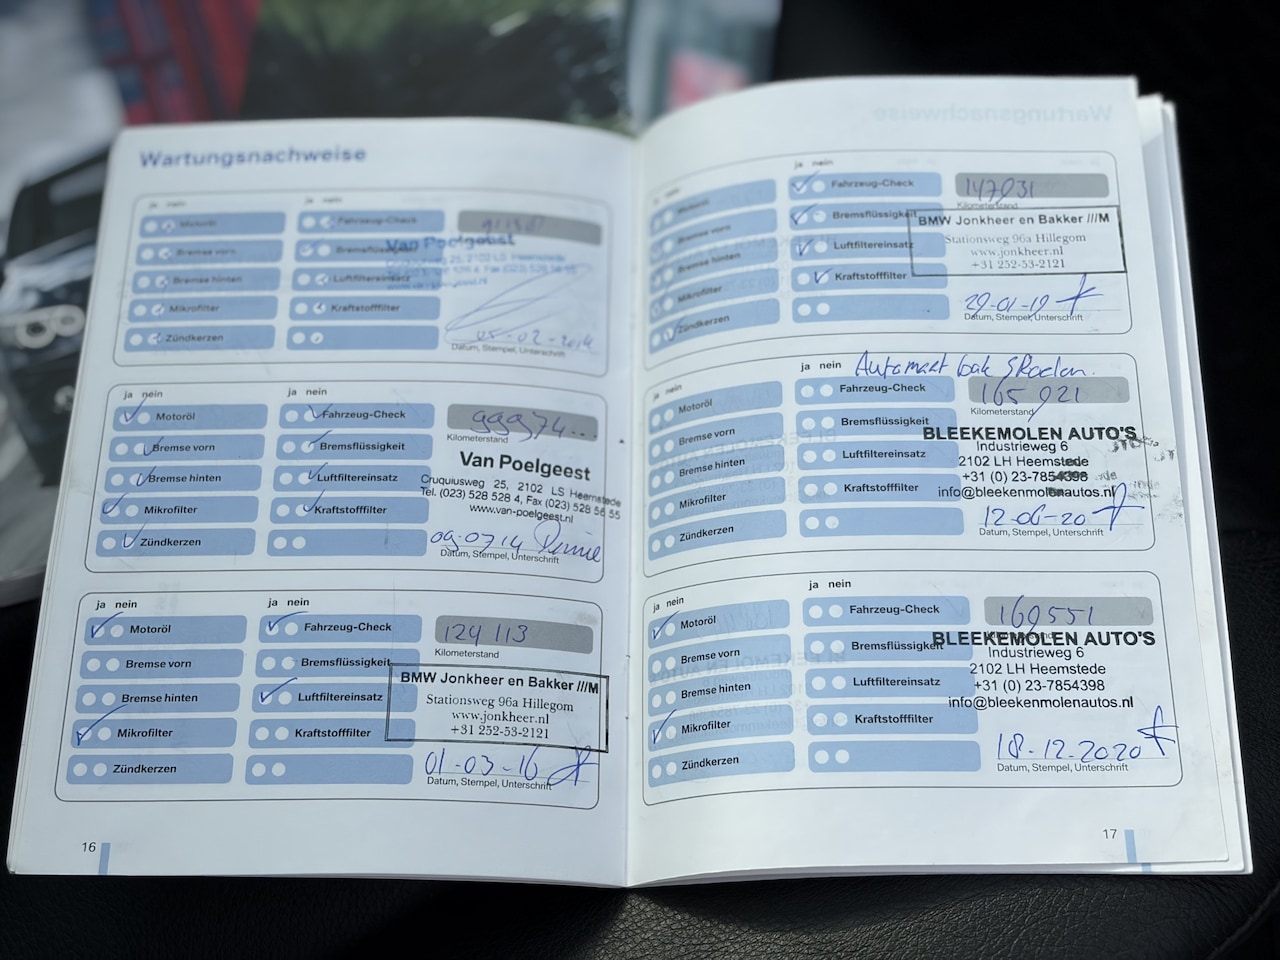 Wartungsnachweise
ja nein ja nein
Motoröl Fahrzeug-Check
Van Poelgeest
Bremse vorn Bremsflüssigkeit
Bremse hinten Luftfiltereinsatz
Mikrofilter Kraftstofffilter
Zündkerzen
05-02-2014
Datum, Stempel, Unterschrift
ja nein ja nein
Motoröl Fahrzeug-Check 99974...
Kilometerstand
Bremse vorn Bremsflüssigkeit
Van Poelgeest
Bremse hinten Luftfiltereinsatz
Cruquiusweg 25, 2102 LS Heemstede
Tel. (023) 528 528 4, Fax (023) 528 56 55
www.van-poelgeest.nl
Mikrofilter Kraftstofffilter
Zündkerzen
09-07-14
Datum, Stempel, Unterschrift
ja nein ja nein
Motoröl Fahrzeug-Check 124 113
Kilometerstand
Bremse vorn Bremsflüssigkeit
BMW Jonkheer en Bakker ///M
Stationsweg 96a Hillegom
www.jonkheer.nl
+31 252-53-2121
Bremse hinten Luftfiltereinsatz
Mikrofilter Kraftstofffilter
Zündkerzen
01-03-16
Datum, Stempel, Unterschrift
16
ja nein
Motoröl Fahrzeug-Check 147031
Kilometerstand
Bremse vorn Bremsflüssigkeit
BMW Jonkheer en Bakker ///M
Stationsweg 96a Hillegom
www.jonkheer.nl
+31 252-53-2121
Bremse hinten Luftfiltereinsatz
Mikrofilter Kraftstofffilter
Zündkerzen
29-01-19
Datum, Stempel, Unterschrift
ja nein ja nein
Motoröl Fahrzeug-Check 165 021
Kilometerstand
Bremse vorn Bremsflüssigkeit
BLEEKEMOLEN AUTO'S
Industrieweg 6
2102 LH Heemstede
+31 (0) 23-7854398
info@bleekenmolenautos.nl
Bremse hinten Luftfiltereinsatz
Mikrofilter Kraftstofffilter
Zündkerzen
12-06-20
Datum, Stempel, Unterschrift
ja nein ja nein
Motoröl Fahrzeug-Check 169551
Bremse vorn Bremsflüssigkeit
BLEEKEMOLEN AUTO'S
Industrieweg 6
2102 LH Heemstede
+31 (0) 23-7854398
info@bleekenmolenautos.nl
Bremse hinten Luftfiltereinsatz
Mikrofilter Kraftstofffilter
Zündkerzen
18-12-2020
Datum, Stempel, Unterschrift
17